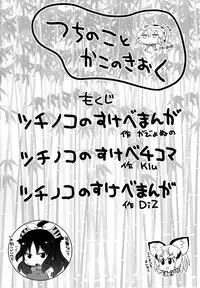 つちのこと
かこのきおく
もくじ
ツチノコのすけべまんが
作 かぢょぬの
ツチノコのすけべ4コマ
作 Klu
ツチノコのすけべまんが
作 DiZ